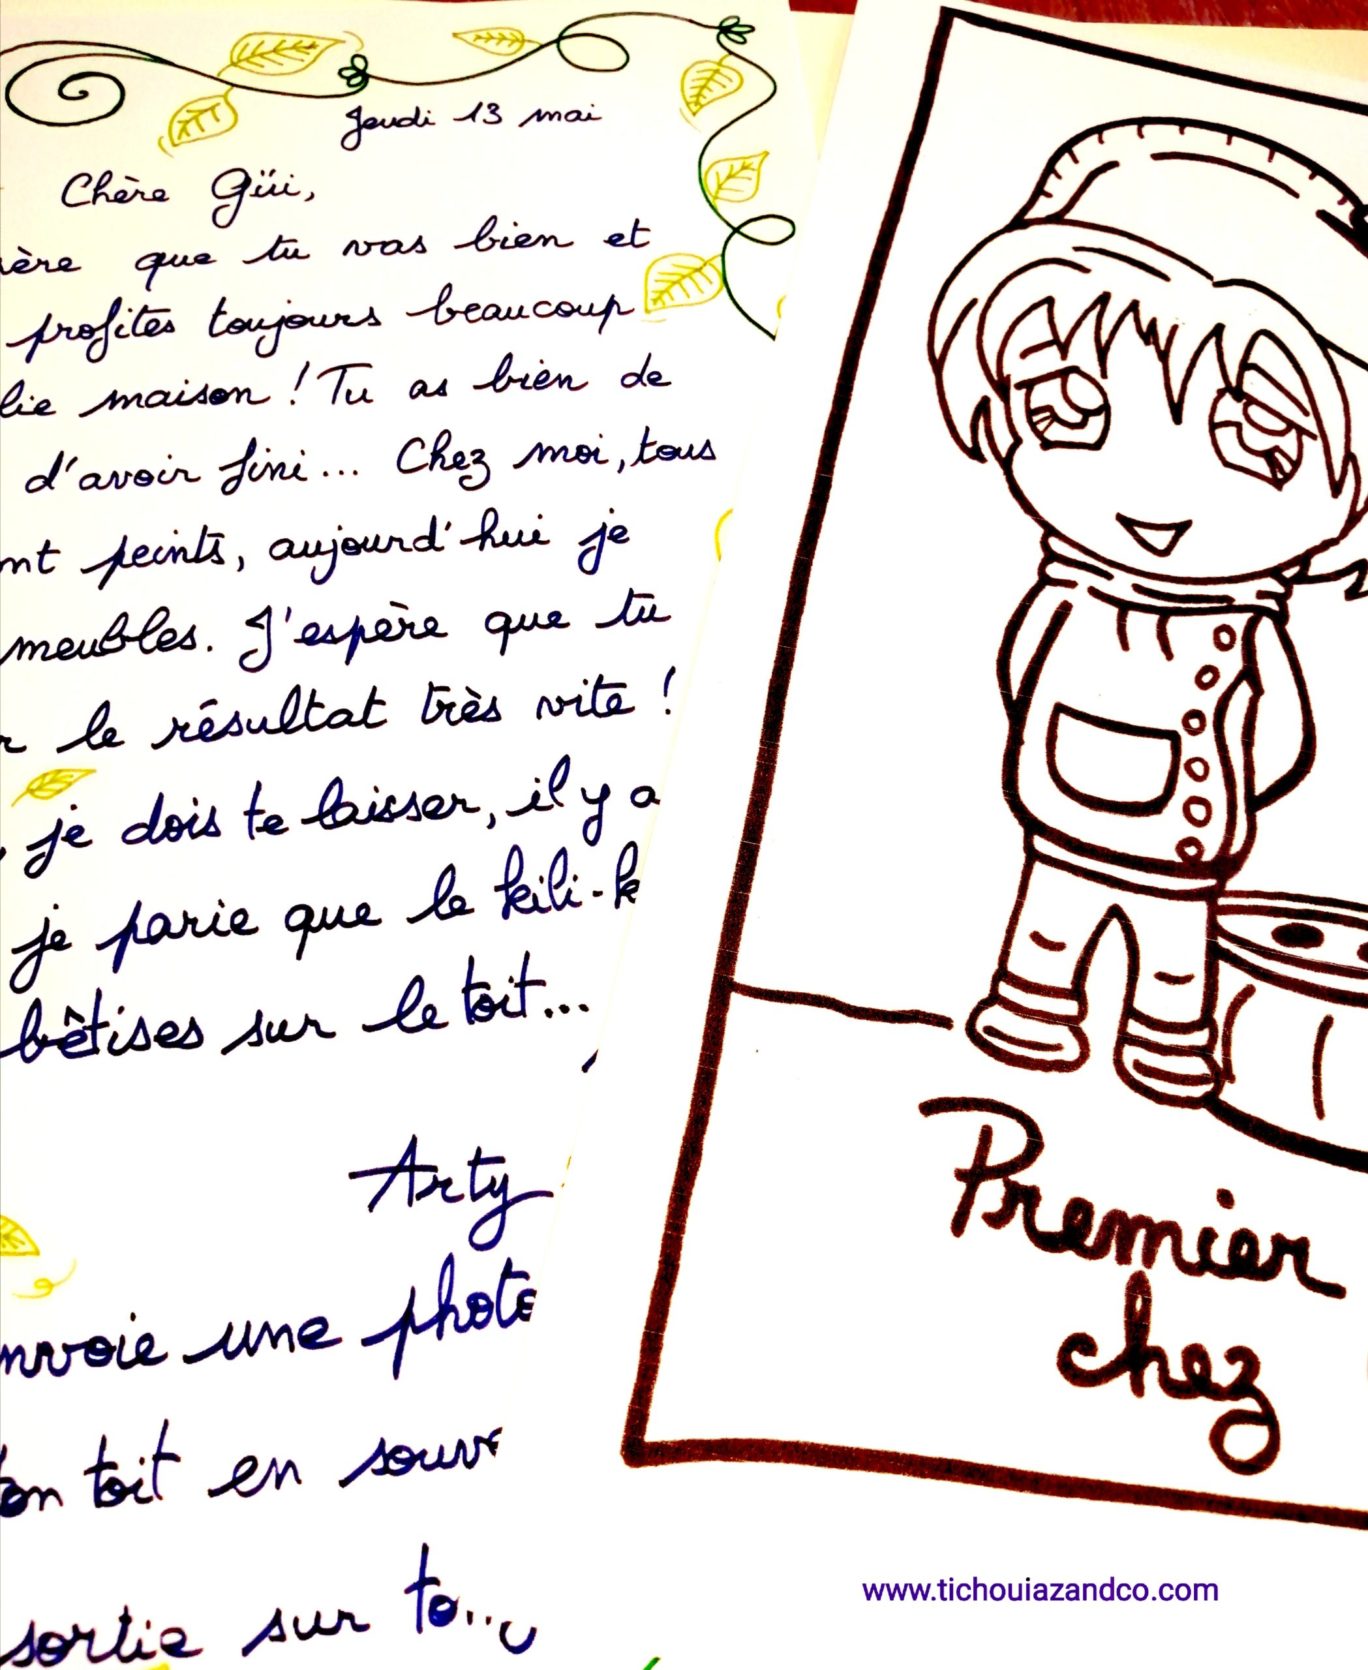 Jeudi 13 mai
Chère Güi,
que tu vas bien et
profites toujours beaucoup
maison ! Tu as bien de
d'avoir fini... Chez moi, tous
peints, aujourd'hui je
meubles. J'espère que tu
le résultat très vite !
je dois te laisser, il y a
je parie que le kili-k
bêtises sur le toit...
Arty
une photo
toit en souv
sortie sur to
Premier
chez
www.tichouiazandco.com